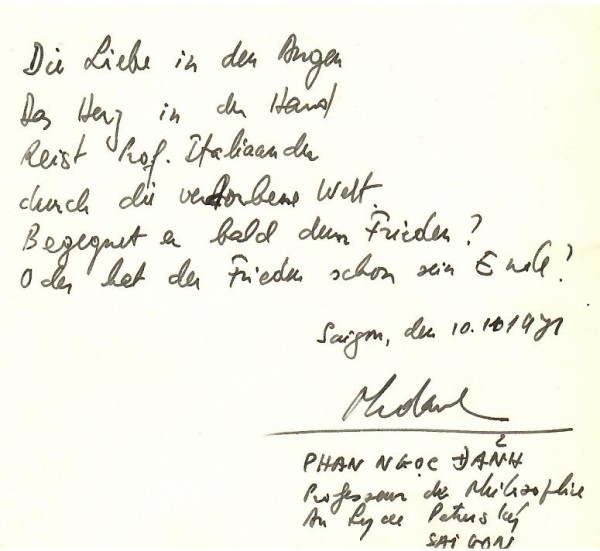 Die Liebe in den Augen
Das Herz in der Hand
Reist Prof. Italiaander
durch die verdorbene Welt.
Begegnet er bald dem Frieden?
Oder hat der Frieden schon sein Ende?
Saigon, den 10. 1971
PHAN NGỌC ĐẢNH
Professeur de Philosophie
Au Lycée Petrus Ký
SAIGON